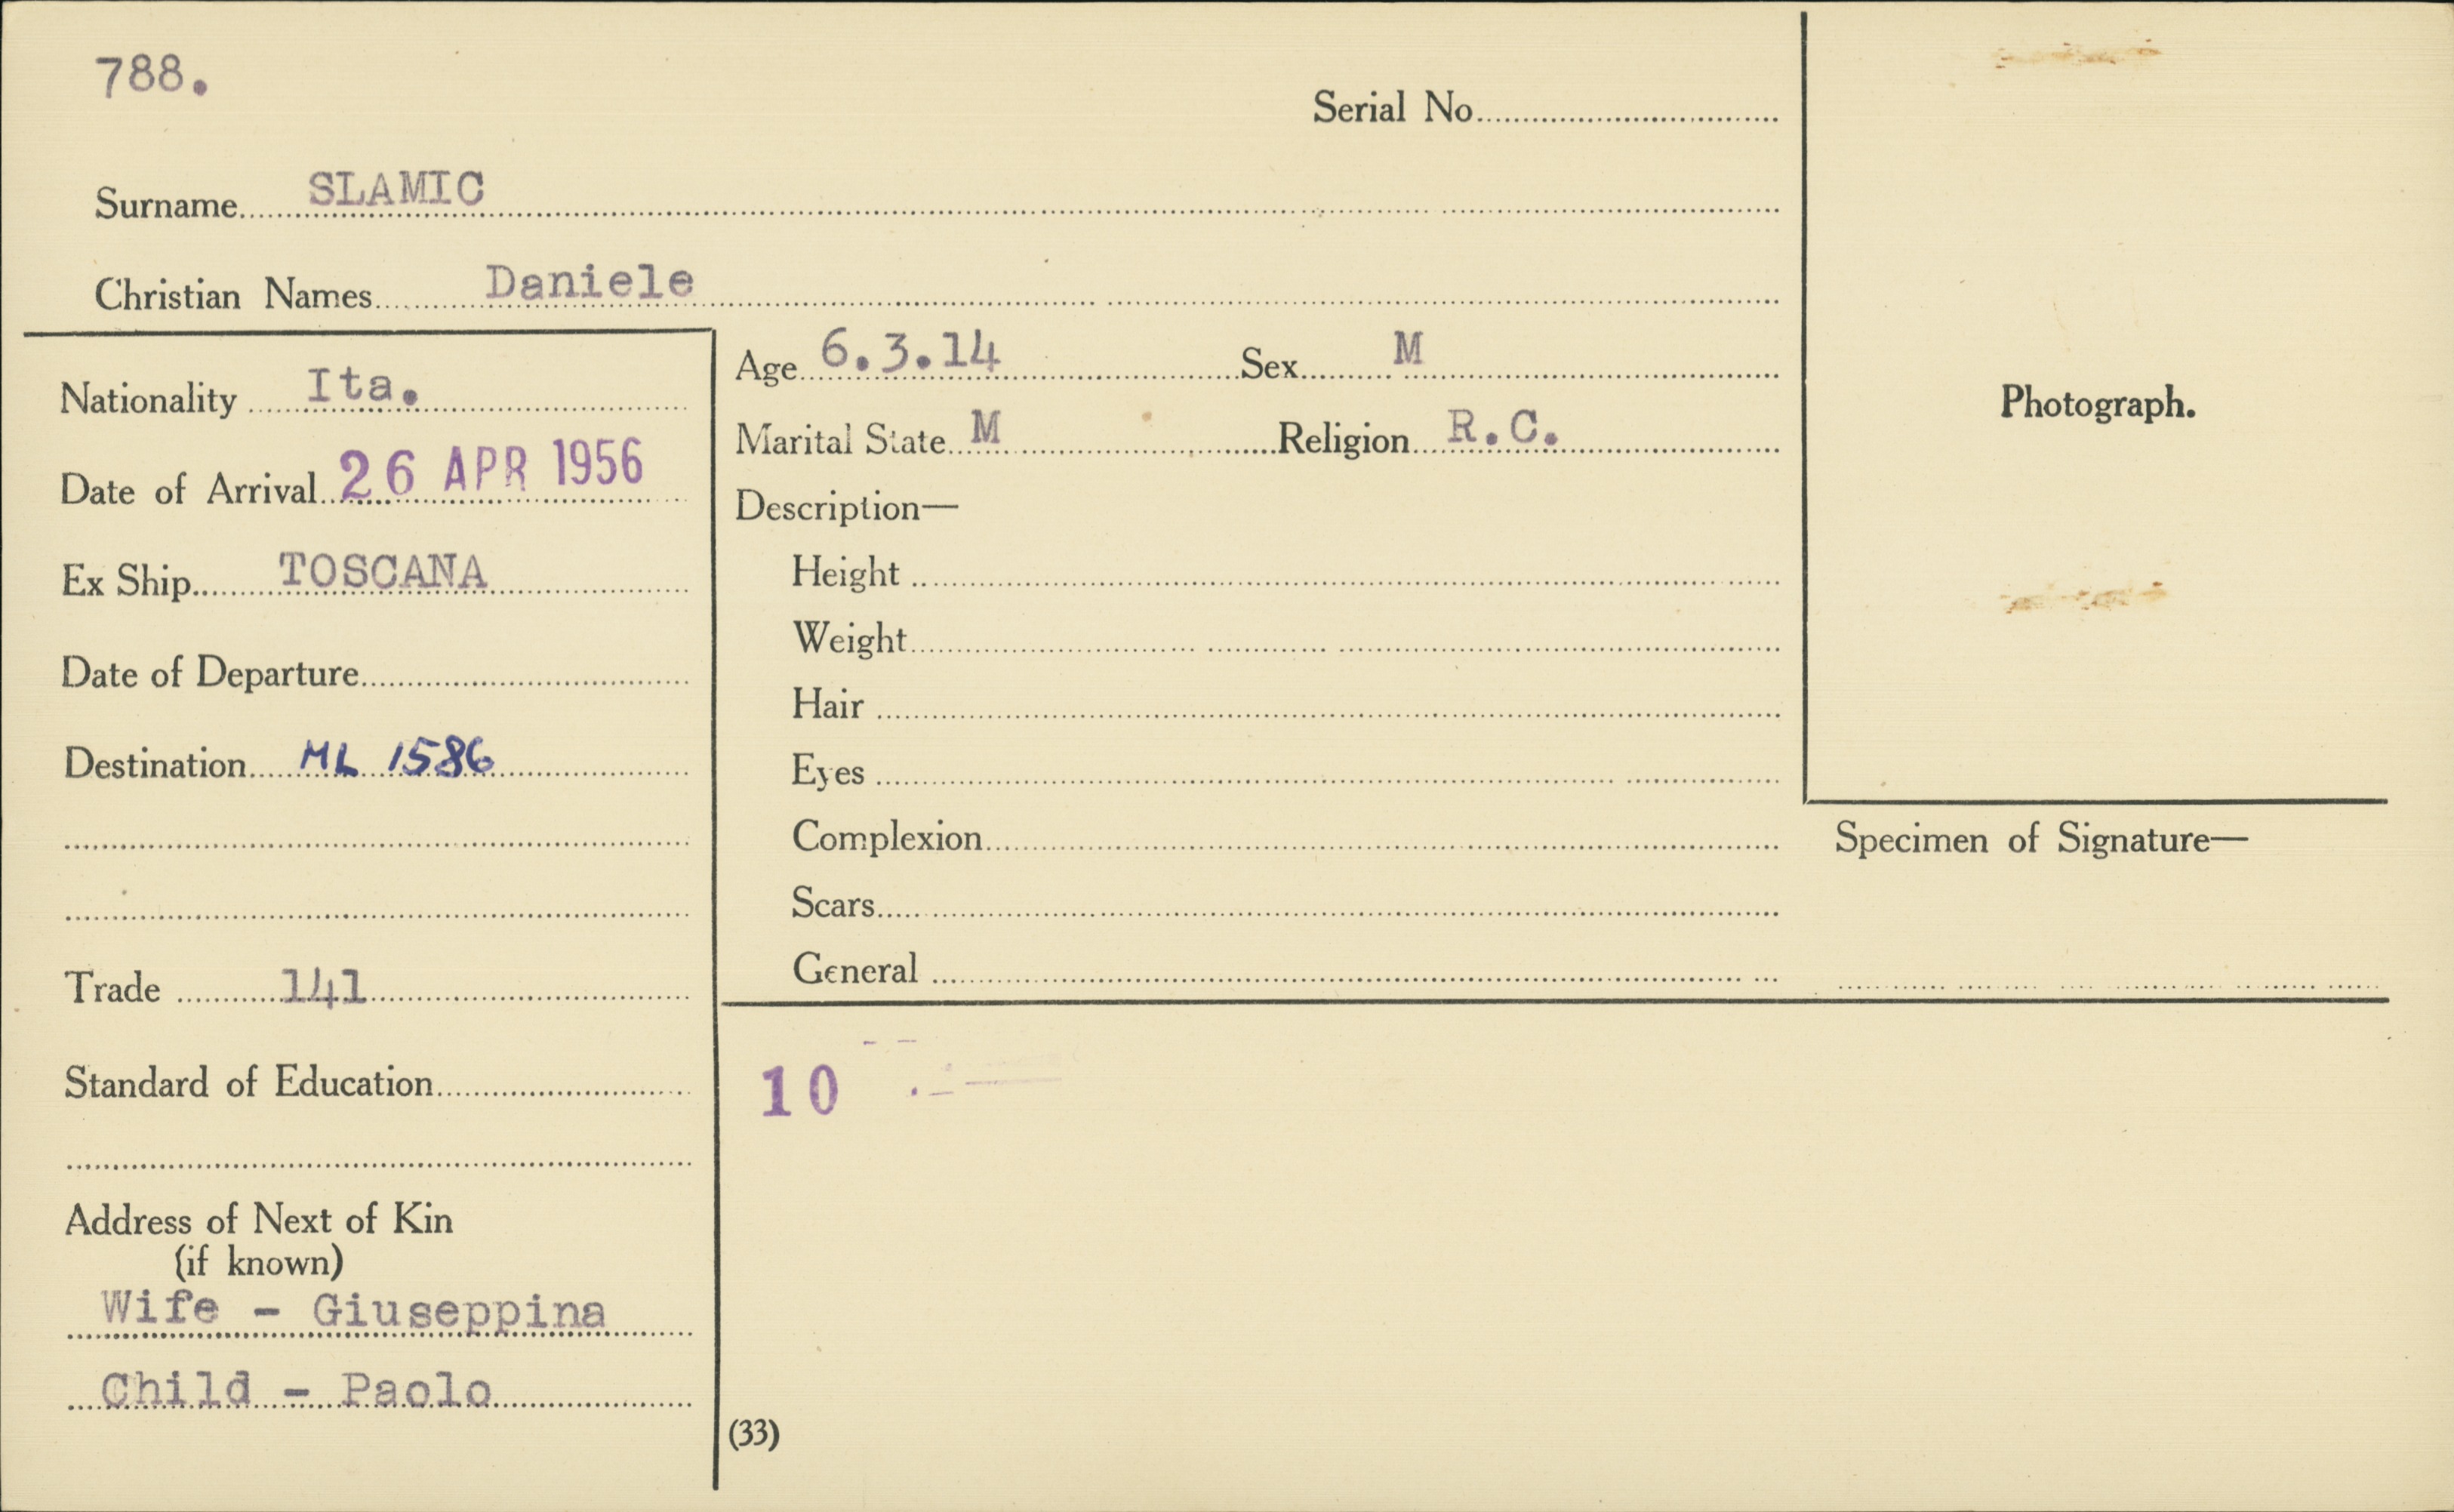 788.
Serial No.
Surname SLAMIC
Christian Names Daniele
Nationality Ita.
Date of Arrival 26 APR 1956
Ex Ship TOSCANA
Date of Departure
Destination ML 1586
Trade 141
Standard of Education
Address of Next of Kin
(if known)
Wife - Giuseppina
Child - Paolo
Age 6.3.14 Sex M
Marital State M Religion R.C.
Description—
Height
Weight
Hair
Eyes
Complexion
Scars
General
10
(33)
Photograph.
Specimen of Signature—